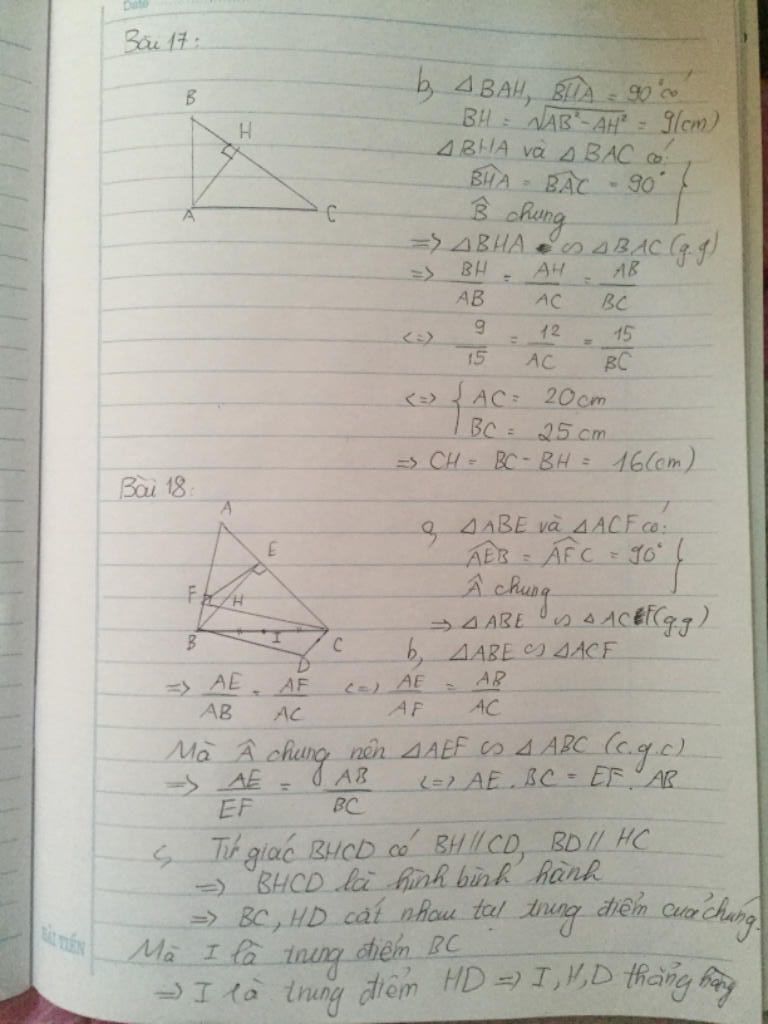 Date
Bài 17:
B
H
A
C
b, △BAH, BHA = 90° có
BH = √AB² - AH² = 9(cm)
△BHA và △BAC có:
BHA = BAC = 90° }
B̂ chung
=> △BHA ∽ △BAC (g.g)
=> BH/AB = AH/AC = AB/BC
<=> 9/15 = 12/AC = 15/BC
<=> { AC = 20cm
BC = 25cm
=> CH = BC - BH = 16(cm)
Bài 18:
A
E
F
H
B
I
C
D
a, △ABE và △ACF có:
AEB = AFC = 90° }
Â chung
=> △ABE ∽ △ACF (g.g)
b, △ABE ∽ △ACF
=> AE/AB = AF/AC <=> AE/AF = AB/AC
Mà Â chung nên △AEF ∽ △ABC (c.g.c)
=> AE/EF = AB/BC <=> AE . BC = EF . AB
c, Tứ giác BHCD có BH // CD, BD // HC
=> BHCD là hình bình hành
=> BC, HD cắt nhau tại trung điểm của chúng.
Mà I là trung điểm BC
=> I là trung điểm HD => I, H, D thẳng hàng
BÀI TIẾN